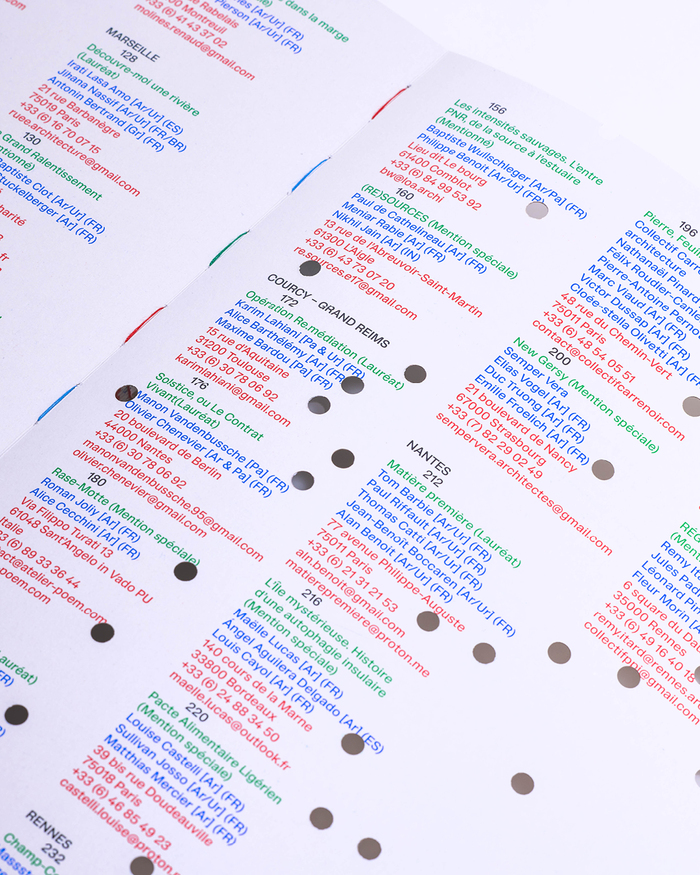 dans la marge
[Ar/Ur] (FR)
Pierson [Ar/Ur] (FR)
Rabelais
Montreuil
+33 (6) 41 43 37 02
molines.renaud@gmail.com
MARSEILLE
128
Découvre-moi une rivière
(Lauréat)
Irati Lasa Amo [Ar/Ur] (ES)
Jihana Nassif [Ar/Ur] (FR/BR)
Antonin Bertrand [Gr] (FR)
21 rue Barbanègre
75019 Paris
+33 (6) 16 70 07 15
ruee.architecture@gmail.com
130
Grand Ralentissement
Baptiste Clot [Ar/Ur] (FR)
Stuckelberger [Ar] (FR)
156
Les intensités sauvages. L'entre
PNR, de la source à l'estuaire
(Mentionné)
Baptiste Wullschleger [Ar/Pa] (FR)
Philippe Benoit [Ar/Ur] (FR)
Lieu dit Le bourg
61400 Comblot
+33 (6) 84 99 53 92
bw@loa.archi
160
(RE)SOURCES (Mention spéciale)
Paul de Cathelineau [Ar] (FR)
Meniar Rabie [Ar] (FR)
Nikhil Jain [Ar] (IN)
13 rue de l'Abreuvoir-Saint-Martin
61300 L'Aigle
+33 (6) 43 73 07 20
re.sources.e17@gmail.com
COURCY – GRAND REIMS
172
Opération Re.médiation (Lauréat)
Karim Lahiani [Pa & Ur] (FR)
Alice Barthélémy [Ar] (FR)
Maxime Bardou [Pa] (FR)
15 rue d'Aquitaine
31200 Toulouse
+33 (6) 30 78 06 92
karimlahiani@gmail.com
176
Solstice, ou Le Contrat
Vivant(Lauréat)
Manon Vandenbussche [Pa] (FR)
Olivier Chenevier [Ar & Pa] (FR)
20 boulevard de Berlin
44000 Nantes
+33 (6) 30 78 06 92
manonvandenbussche.95@gmail.com
olivier.chenevier@gmail.com
180
Rase-Motte (Mention spéciale)
Roman Joliy [Ar] (FR)
Alice Cecchini [Ar] (FR)
Via Filippo Turati 13
61048 Sant'Angelo in Vado PU
Italie
(6) 89 33 36 44
@atelier-poem.com
poem.com
RENNES
232
196
Pierre, Feui
Collectif Carr
architecture
Nathanaël Pinar
Félix Roudier-Canle
Pierre-Antoine Pen
Marc Viaud [Ar] (FR)
Victor Dussap [Ar] (FR)
Cloée-stella Olivetti [Ar] (FR)
48 rue du Chemin-Vert
75011 Paris
+33 (6) 48 54 05 51
contact@collectifcarrenoir.com
200
New Gersy (Mention spéciale)
Semper Vera
Elias Vogel [Ar] (FR)
Duc Truong [Ar] (FR)
Emilie Froelich [Ar] (FR)
21 boulevard de Nancy
67000 Strasbourg
+33 (7) 82 29 02 49
sempervera.architectes@gmail.com
NANTES
212
Matière première (Lauréat)
Tom Barbie [Ar/Ur] (FR)
Paul Riffault [Ar/Ur] (FR)
Thomas Catti [Ar/Ur] (FR)
Jean-Benoît Boccaren [Ar/Ur] (FR)
Alan Benoit [Ar/Ur] (FR)
77 avenue Philippe-Auguste
75011 Paris
+33 (6) 21 31 21 53
aln.benoit@gmail.com
matierepremiere@proton.me
216
L'Île mystérieuse. Histoire
d'une autophagie insulaire
(Mention spéciale)
Maëlie Lucas [Ar] (FR)
Ángel Aguilera Delgado [Ar] (ES)
Louis Cayol [Ar] (FR)
140 cours de la Marne
33800 Bordeaux
+33 (6) 24 88 34 50
maelle.lucas@outlook.fr
220
Pacte Alimentaire Ligérien
(Mention spéciale)
Louise Castelli [Ar] (FR)
Sullivan Josso [Ar/Ur] (FR)
Matthias Mercier [Ar] (FR)
39 bis rue Doudeauville
75018 Paris
+33 (6) 46 85 49 23
castelli.louise@proton.m
6 square du
35000 Rennes
+33 (6) 49 16 40 18
remy.itard@rennes.ar
collectifppj@gmail.com